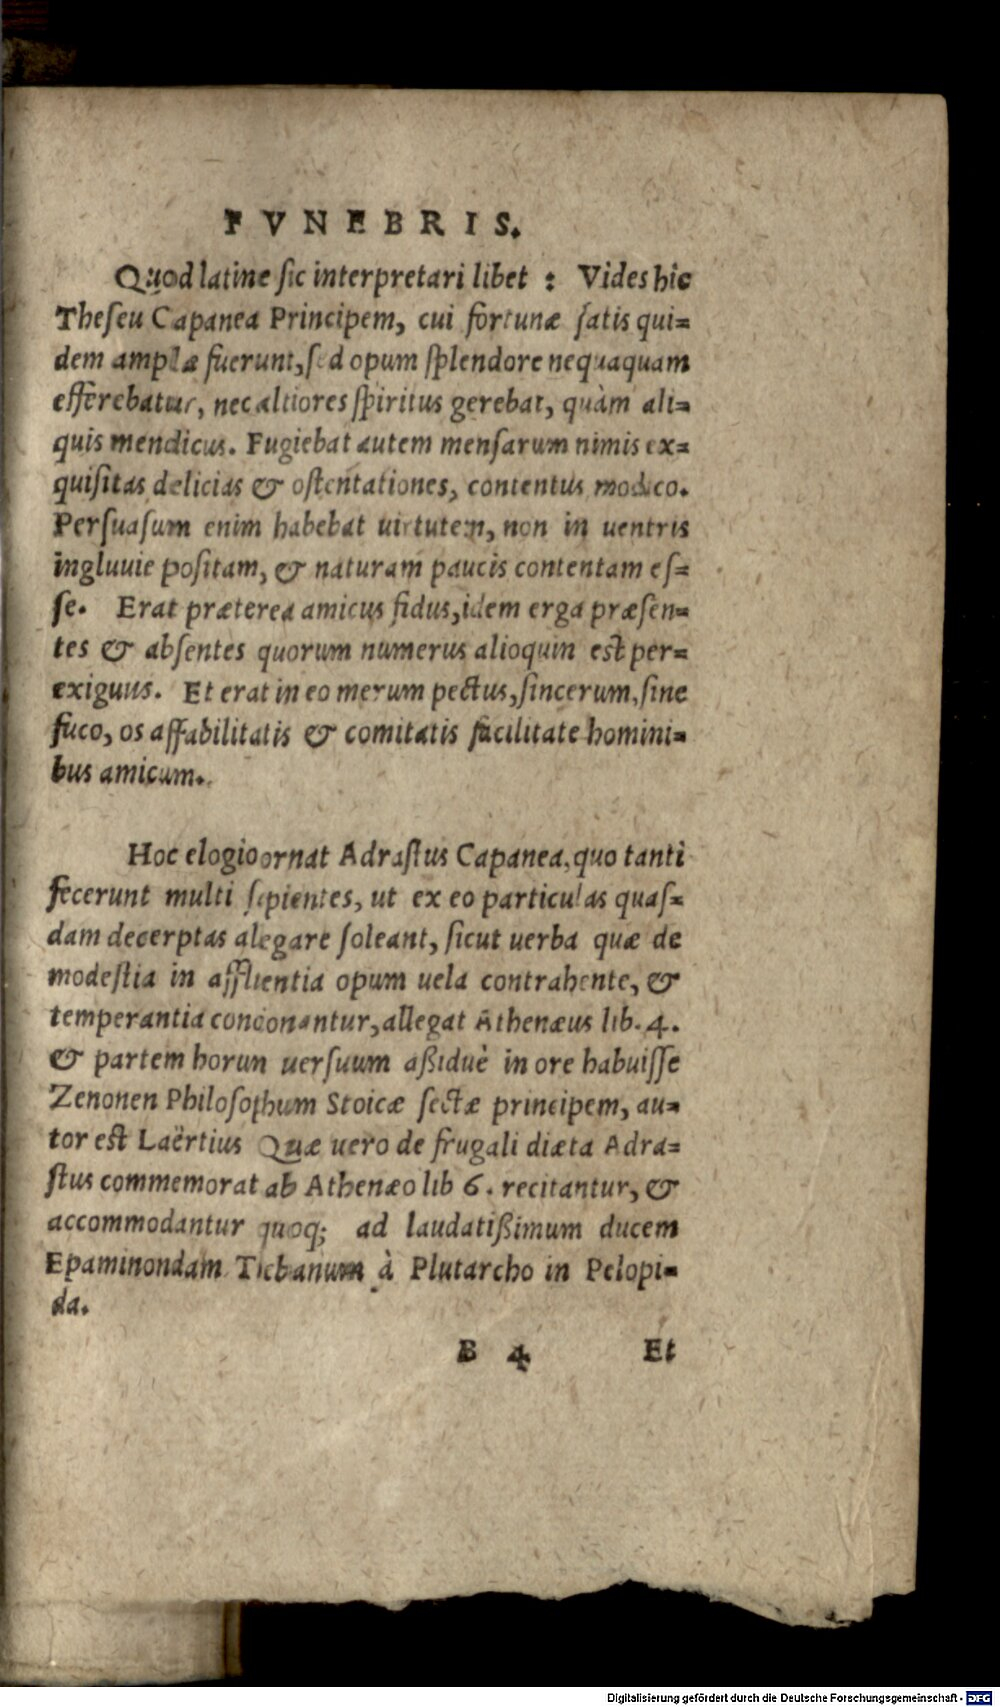 FVNEBRIS.
Quod latine sic interpretari libet : Vides hic
Theseu Capanea Principem, cui fortunæ satis qui=
dem amplæ fuerunt, sed opum splendore nequaquam
efferebatur, nec altiores spiritus gerebat, quàm ali=
quis mendicus. Fugiebat autem mensarum nimis ex=
quisitas delicias & ostentationes, contentus modico.
Persuasum enim habebat uirtutem, non in uentris
ingluuie positam, & naturam paucis contentam es=
se. Erat præterea amicus fidus, idem erga præsen=
tes & absentes quorum numerus alioquin est per=
exiguus. Et erat in eo merum pectus, sincerum, sine
fuco, os affabilitatis & comitatis facilitate homini=
bus amicum.
Hoc elogio ornat Adrastus Capanea, quo tanti
fecerunt multi sapientes, ut ex eo particulas quas=
dam decerptas alegare soleant, sicut uerba quæ de
modestia in affluentia opum uela contrahente, &
temperantia concionantur, allegat Athenæus lib. 4.
& partem horun uersuum aßiduè in ore habuisse
Zenonen Philosophum Stoicæ sectæ principem, au=
tor est Laërtius Quæ uero de frugali diæta Adra=
stus commemorat ab Athenæo lib 6. recitantur, &
accommodantur quoq; ad laudatißimum ducem
Epaminondam Thebanum à Plutarcho in Pelopi=
da.
B 4 Et
Digitalisierung gefördert durch die Deutsche Forschungsgemeinschaft - DFG